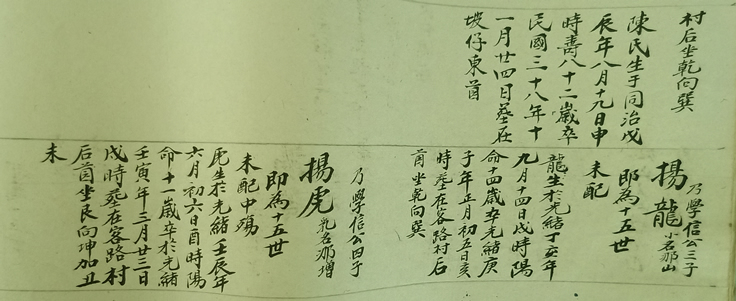 村后坐乾向巽
陳民生于同治戊
辰年八月十九日申
時壽八十二歲卒
民國三十八年十
一月廿四日墓在
坡仔東首
乃學信公三子
揚龍 小名那山
即為十五世
未配
龍生於光緒丁亥年
九月十四日戌時陽
命十四歲卒光緒庚
子年正月初五日亥
時墓在客路村后
首坐乾向巽
乃學信公四子
揚虎 乳名那增
即為十五世
未配中殤
虎生於光緒壬辰年
六月初六日酉時陽
命十一歲卒於光緒
壬寅年三月廿二日
戌時葬在客路村
后首坐艮向坤加丑
未